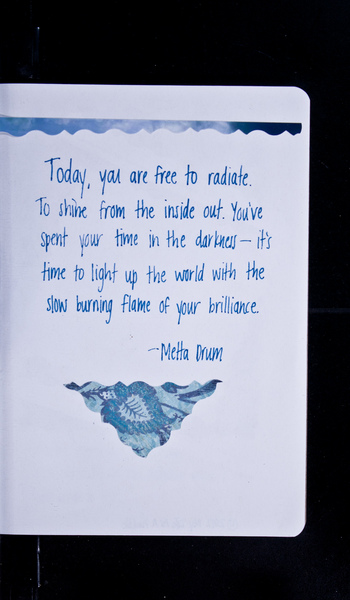 Today, you are free to radiate.
To shine from the inside out. You've
spent your time in the darkness – it's
time to light up the world with the
slow burning flame of your brilliance.
– Metta Drum